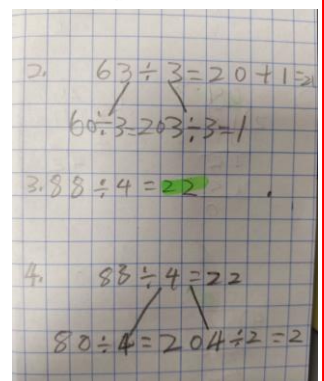 2. 63÷3=20+1=21
60÷3=20 3÷3=1
3. 88÷4=22
4. 88÷4=22
80÷4=20 4÷2=2